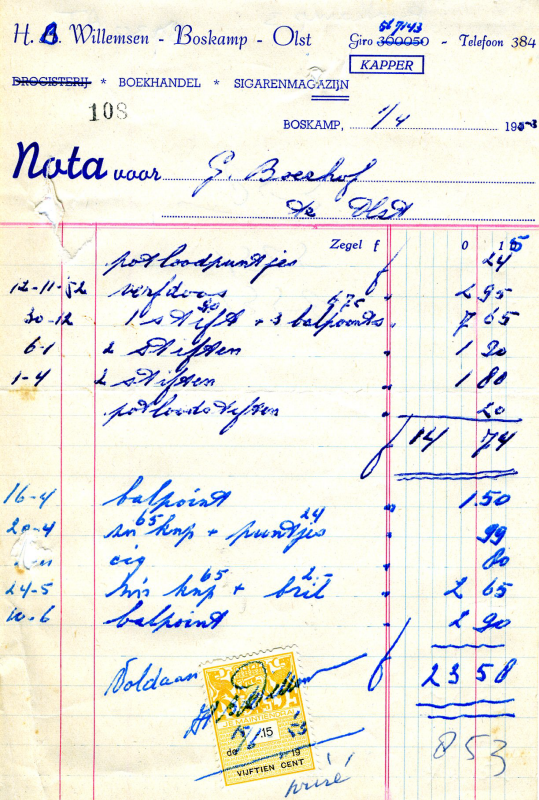 H. B. Willemsen - Boskamp - Olst
567143
Giro 300050 - Telefoon 384
KAPPER
DROGISTERIJ * BOEKHANDEL * SIGARENMAGAZIJN
108
BOSKAMP, 1/4 1953
Nota voor G. Boerhof
te Olst
Zegel f 0 15
potloodpuntjes f 24
12-11-52 verfdoos " 2 95
30-12 1 stift 90 + 3 balpoints 675 " 7 65
6-1 2 stiften " 1 90
1-4 2 stiften " 1 80
potloodstiften " 20
f 14 74
16-4 balpoint " 1 50
20-4 sn 65 knp + puntjes 24 " 99
cig " 80
24-5 knp 65 + bril 2.- " 2 65
10-6 balpoint " 2 90
f 23 58
Voldaan
15
15/6 '53
de 19
VIJFTIEN CENT
privé
853